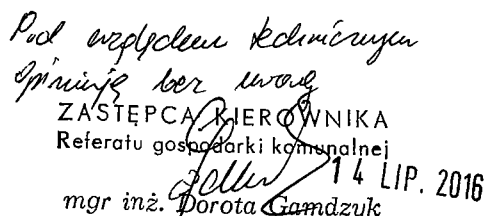 Pod względem technicznym
opiniuję bez uwag
ZASTĘPCA KIEROWNIKA
Referatu gospodarki komunalnej
14 LIP. 2016
mgr inż. Dorota Gamdzyk